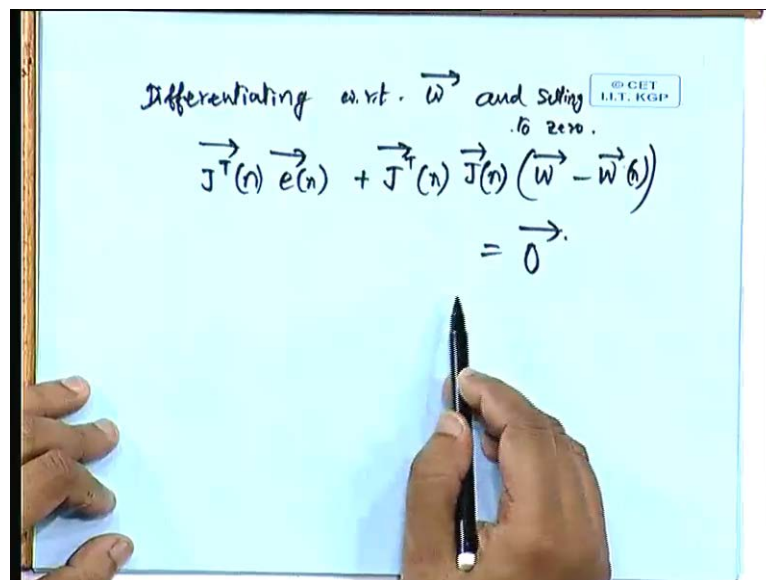 Differentiating w.r.t. w⃗ and setting
to zero.
© CET
I.I.T. KGP
J⃗ᵀ(n) e⃗(n) + J⃗ᵀ(n) J⃗(n) (w⃗ − w⃗(n))
= 0⃗.